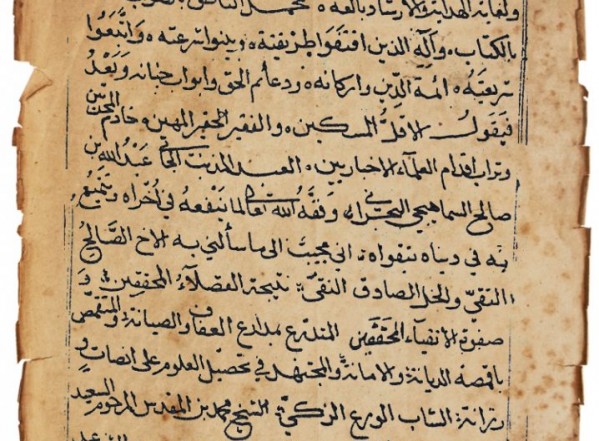 بالكتاب، وآله الذين اقتفوا طريقته، وبينوا شرعته، واتبعوا
شريعته، ائمة الدين واركانه، ودعائم الحق وابواب جنانه، وبعد
فيقول الاقل المسكين، والفقير الحقير المهين، وخادم المحدثين
وتراب اقدام العلماء الاخباريين، العبد المذنب الجاني عبد الله بن
صالح السماهيجي البحراني، وفقه الله تعالى لما ينفعه في اخراه ويتمتع
به في دنياه بتقواه، اني مجيب الى ما سألني به الاخ الصالح
التقي والخل الصادق النقي، نتيجة الفضلاء المحققين، و
صفوة الاتقياء المحققين المتدرع بمدارع العفاف والصيانة، والمتقمص
باقمصة الديانة والامانة، والمجتهد في تحصيل العلوم على انصات و
رزانة، الشاب الورع الزكي، الشيخ محمد بن المقدس المرحوم السعيد